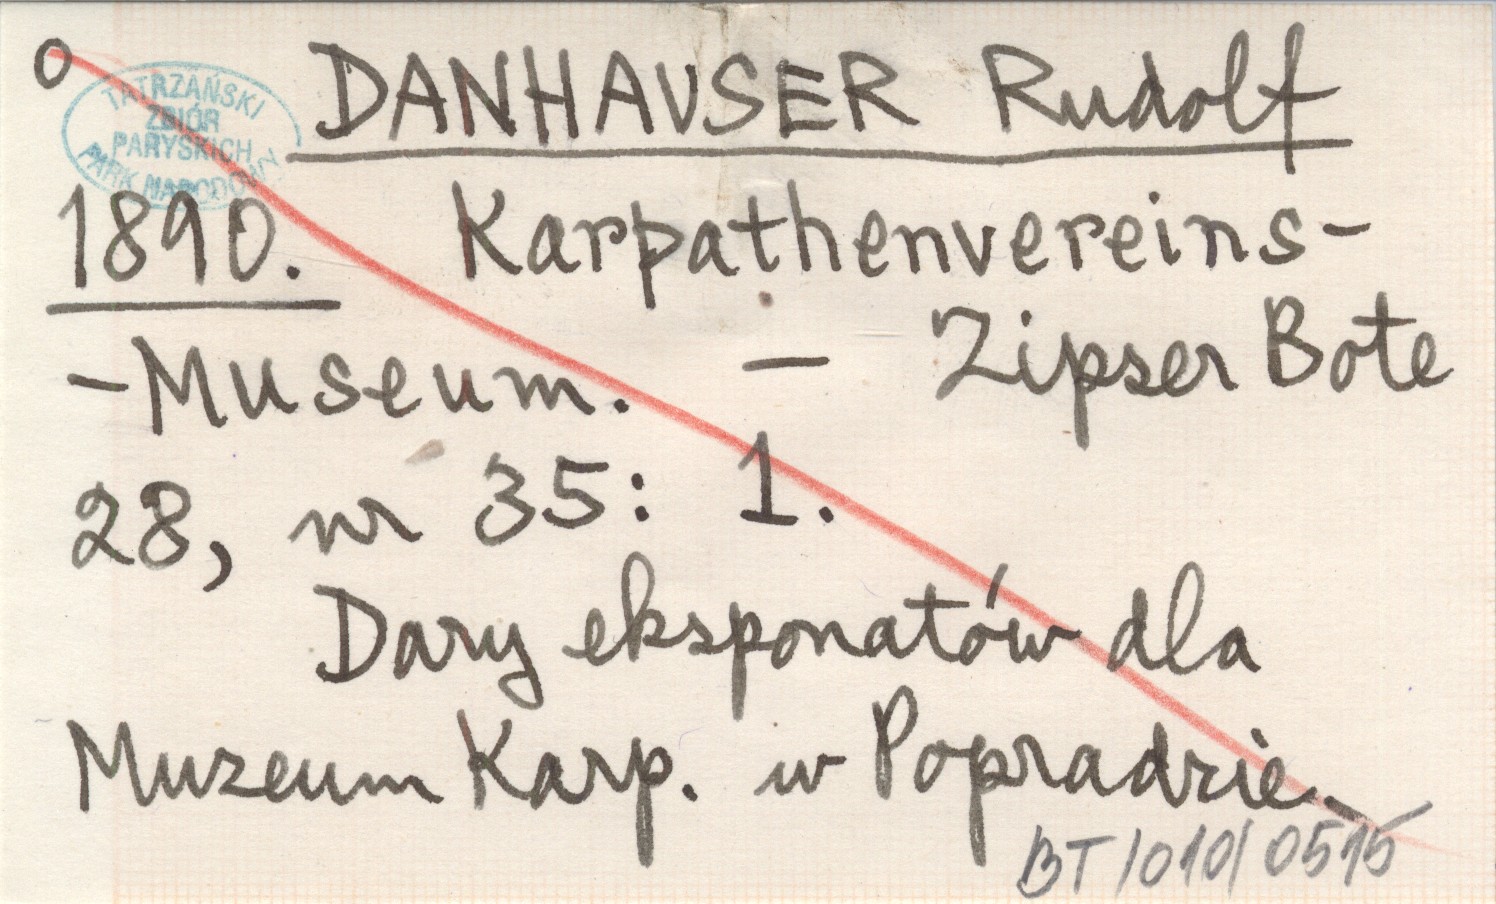 O
TATRZAŃSKI
ZBIÓR
PARYSKICH
PARK NARODOWY
DANHAUSER Rudolf
1890. Karpathenvereins-
-Museum. – Zipser Bote
28, nr 35: 1.
Dary eksponatów dla
Muzeum Karp. w Popradzie.
BT/010/0515